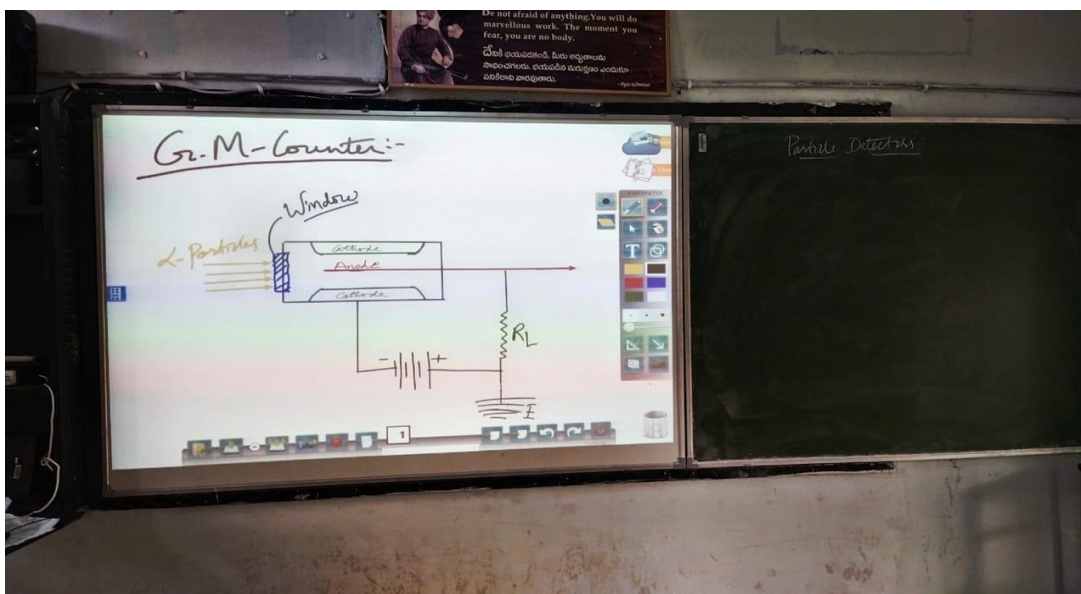 De not afraid of anything.You will do
marvellous work. The moment you
fear, you are no body.
దేనికి భయపడకండి. మీరు అద్భుతాలను
సాధించగలరు. భయపడిన మరుక్షణం ఎందుకూ
పనికిరాని వారవుతారు.
G.M-Counter:-
Window
α-Particles
Cathode
Anode
Cathode
RL
- +
E
1
T
Particle Detectors